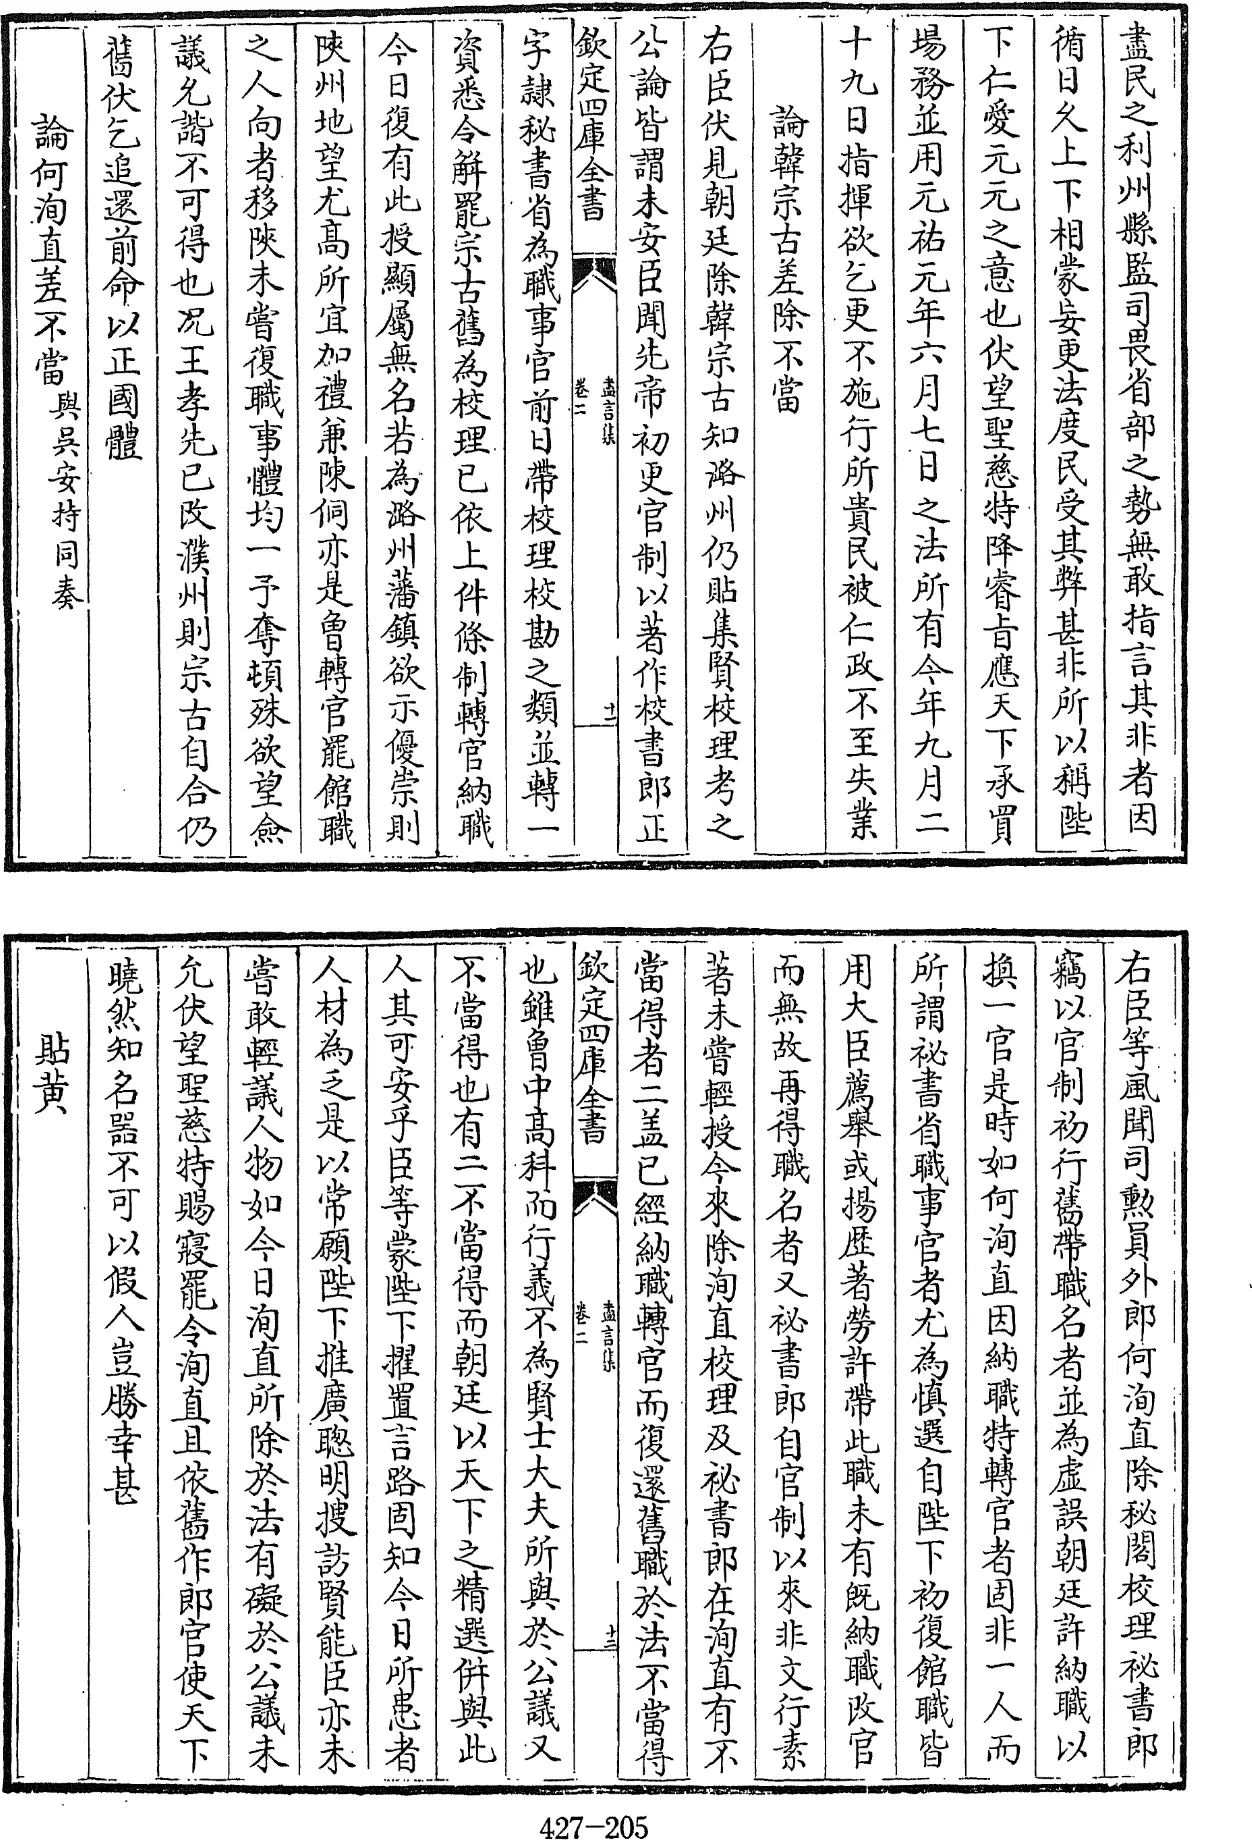 盡民之利州縣監司畏省部之勢無敢指言其非者因
循日久上下相蒙妄更法度民受其弊甚非所以稱陛
下仁愛元元之意也伏望聖慈特降睿旨應天下承買
場務並用元祐元年六月七日之法所有今年九月二
十九日指揮欲乞更不施行所貴民被仁政不至失業
論韓宗古差除不當
右臣伏見朝廷除韓宗古知潞州仍貼集賢校理考之
公論皆謂未安臣聞先帝初更官制以著作校書郎正
欽定四庫全書
盡言集
卷二
十二
字隷秘書省為職事官前日帶校理校勘之類並轉一
資悉令解罷宗古舊為校理已依上件條制轉官納職
今日復有此授顯屬無名若為潞州藩鎮欲示優崇則
陜州地望尤髙所宜加禮兼陳侗亦是曾轉官罷館職
之人向者移陜未嘗復職事體均一予奪頓殊欲望僉
議允諧不可得也况王孝先已改濮州則宗古自合仍
舊伏乞追還前命以正國體
論何洵直差不當
與吳安持同奏
右臣等風聞司勲員外郎何洵直除秘閣校理祕書郎
竊以官制初行舊帶職名者並為虚誤朝廷許納職以
換一官是時如何洵直因納職特轉官者固非一人而
所謂祕書省職事官者尤為慎選自陛下初復館職皆
用大臣薦舉或揚歴著勞許帶此職未有既納職改官
而無故再得職名者又祕書郎自官制以來非文行素
著未嘗輕授今來除洵直校理及祕書郎在洵直有不
當得者二盖已經納職轉官而復還舊職於法不當得
欽定四庫全書
盡言集
卷二
十三
也雖曾中髙科而行義不為賢士大夫所與於公議又
不當得也有二不當得而朝廷以天下之精選併與此
人其可安乎臣等蒙陛下擢置言路固知今日所患者
人材為乏是以常願陛下推廣聰明搜訪賢能臣亦未
嘗敢輕議人物如今日洵直所除於法有礙於公議未
允伏望聖慈特賜寢罷令洵直且依舊作郎官使天下
曉然知名器不可以假人豈勝幸甚
貼黄
427-205